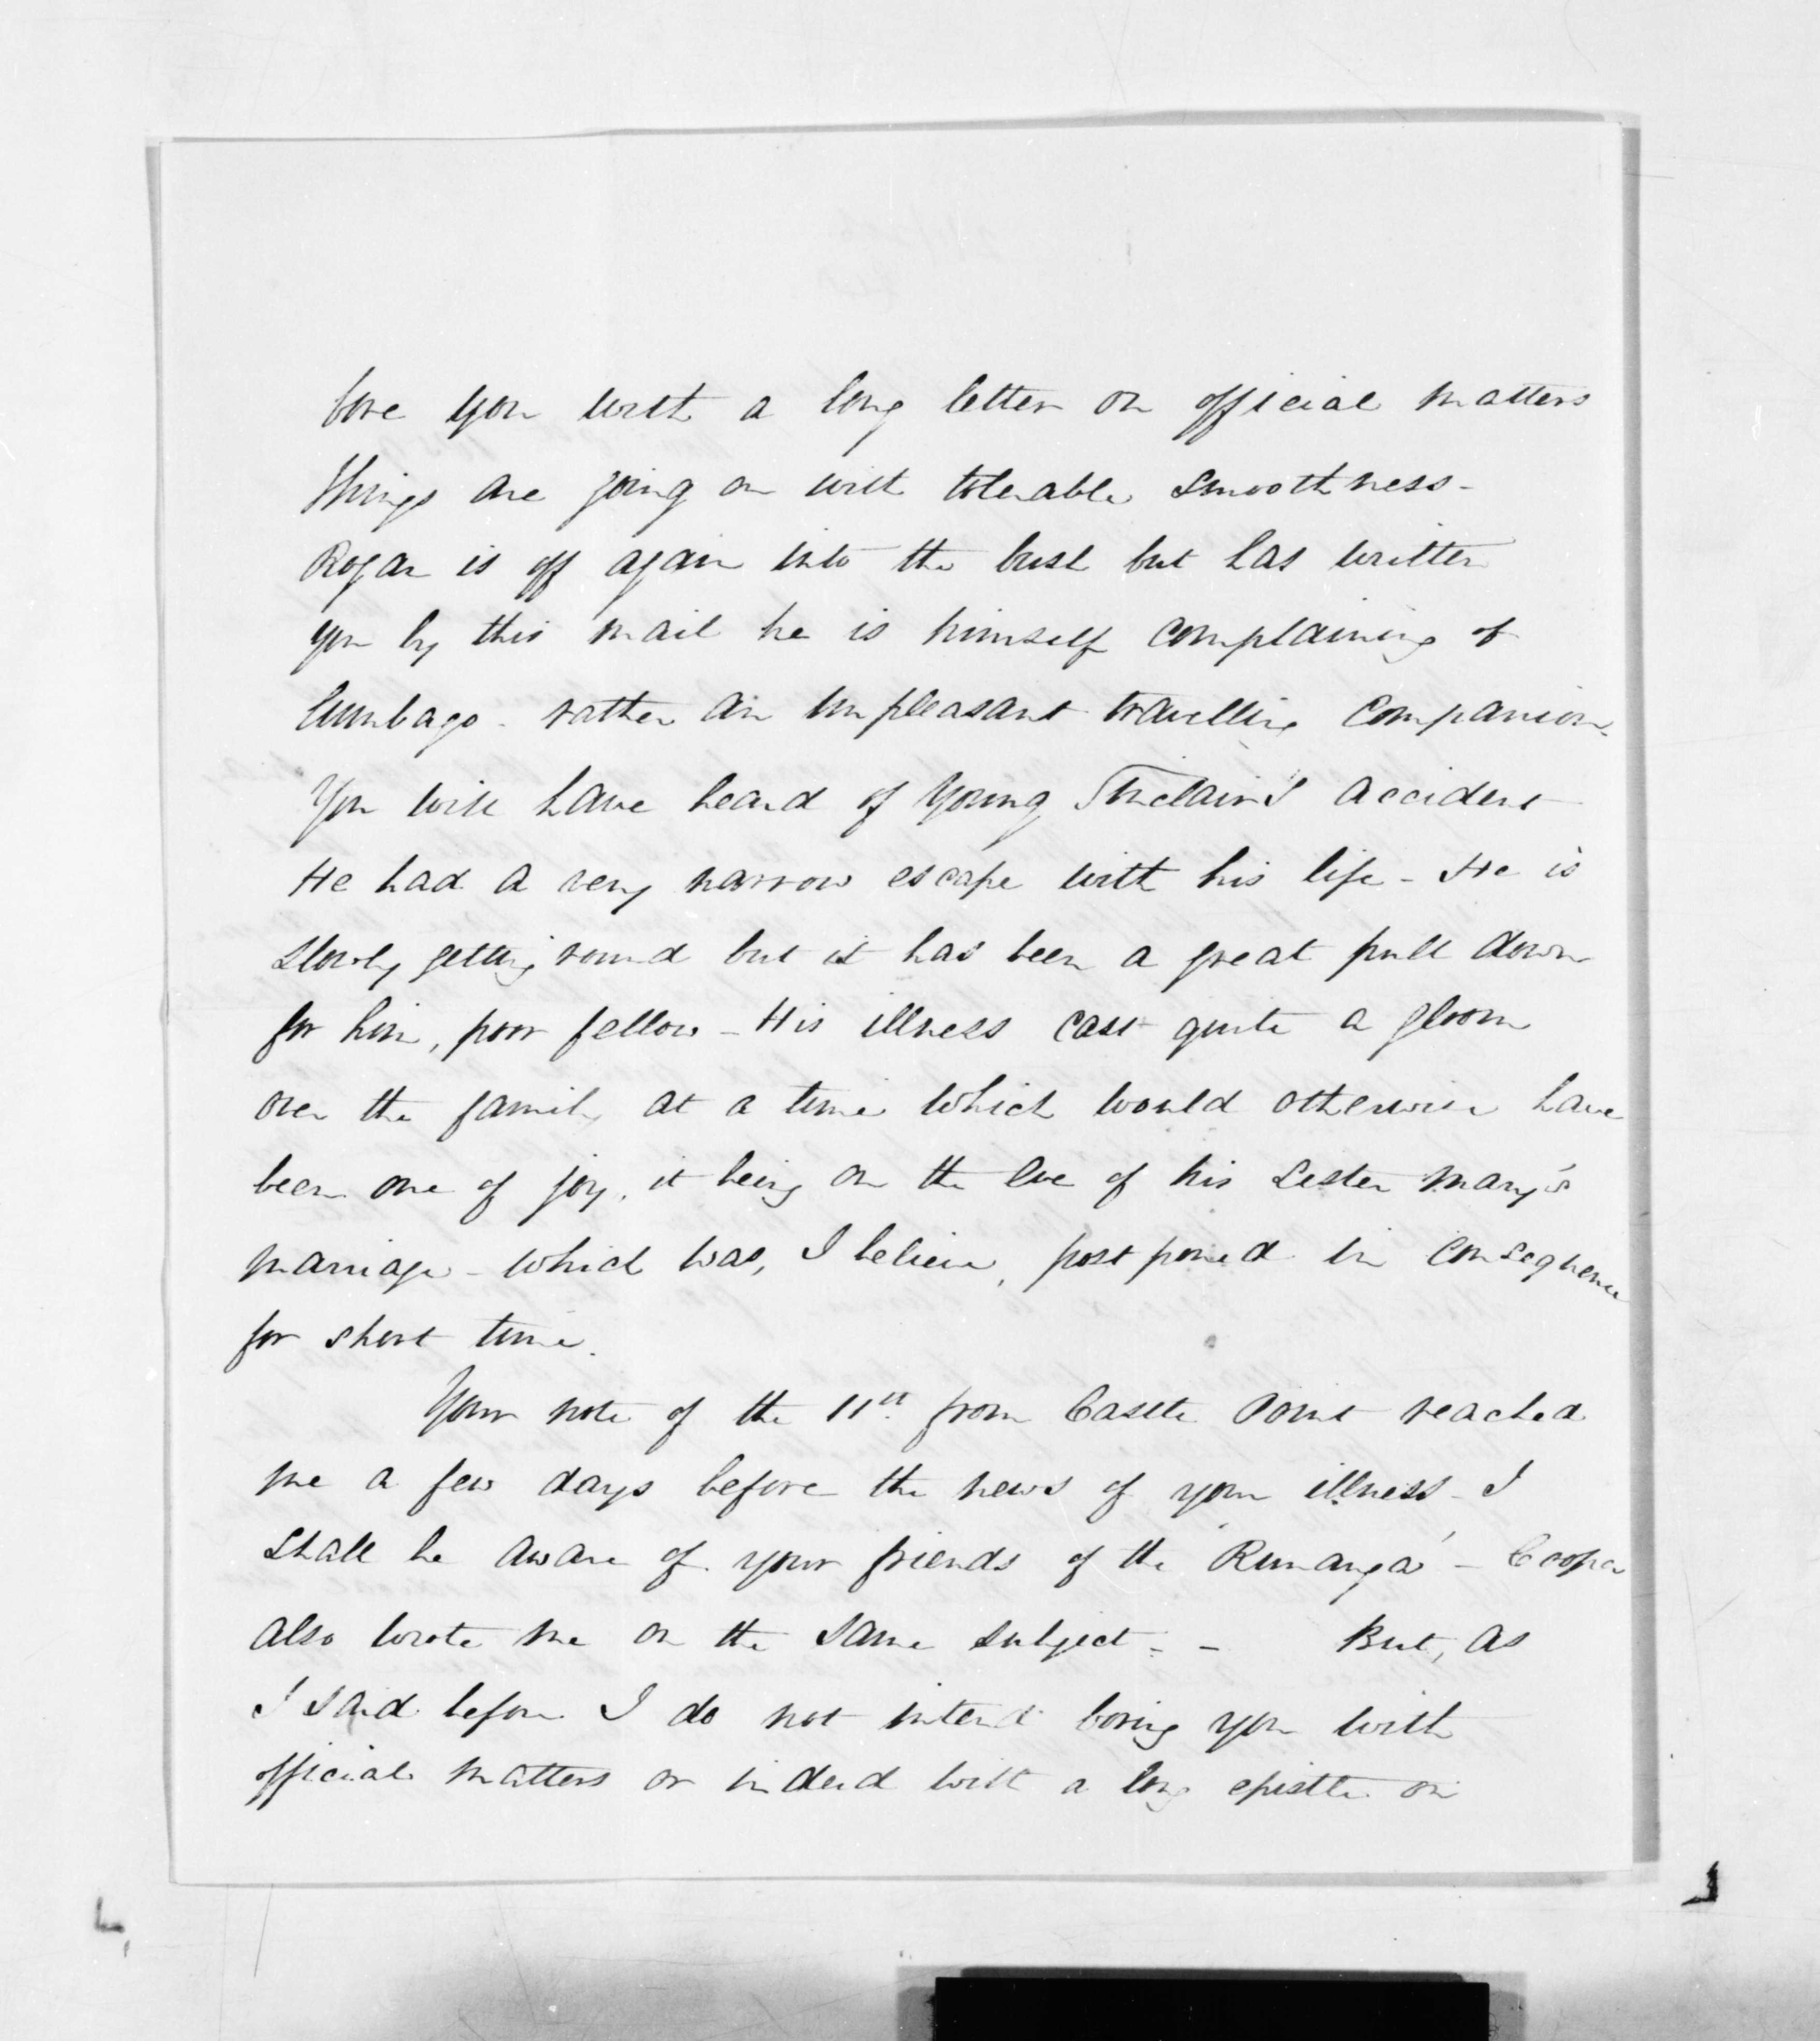 bore you with a long letter on official matters
things are going on with tolerable smoothness -
Rogan is off again into the bush but has written
you by this mail he is himself complaining of
lumbago - rather an unpleasant travelling companion.
You will have heard of young Sinclair's accident
He had a very narrow escape with his life - He is
slowly getting round but it has been a great pull down
for him, poor fellow - His illness cast quite a gloom
over the family at a time which would otherwise have
been one of joy, it being on the eve of his sister Mary's
marriage - which was, I believe, postponed in consequence
for short time.
Your note of the 11th from Castle Point reached
me a few days before the news of your illness - I
shall be aware of your friends of the 'Runanga' - Cooper
also wrote me on the same subject. - But, as
I said before I do not intend boring you with
official matters or indeed with a long epistle on